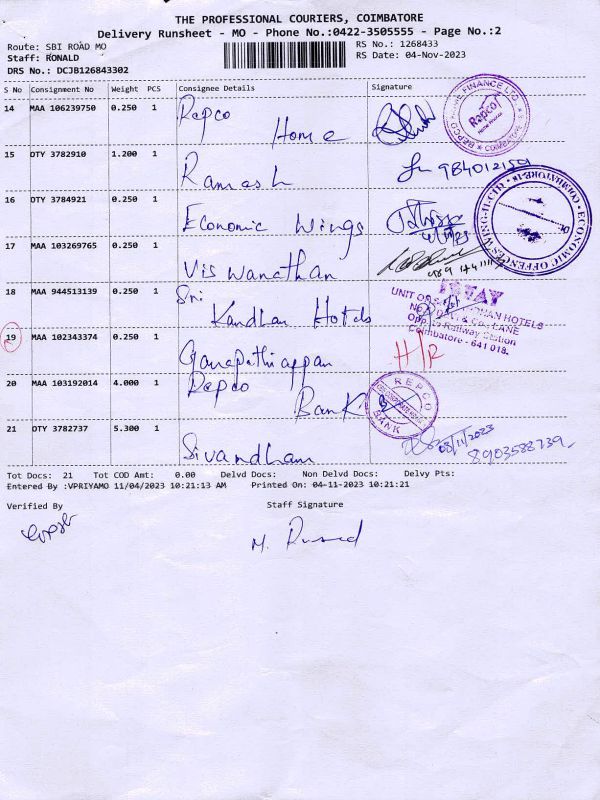 THE PROFESSIONAL COURIERS, COIMBATORE
Delivery Runsheet - MO - Phone No.:0422-3505555 - Page No.:2
Route: SBI ROAD MO RS No.: 1268433
Staff: RONALD RS Date: 04-Nov-2023
DRS No.: DCJB126843302
S No Consignment No Weight PCS Consignee Details Signature
14 MAA 106239750 0.250 1 Repco Home
REPCO HOME FINANCE LTD. COIMBATORE
15 OTY 3782910 1.200 1 Ramesh
16 OTY 3784921 0.250 1 Economic Wings
ECONOMIC OFFENCES WING-II, COIMBATORE-18
17 MAA 103269765 0.250 1 Viswanathan
18 MAA 944513139 0.250 1 Sri Kandhan Hotels
UNIT OF HOTELS
LANE
Opp. to Railway Station
Coimbatore - 641 018.
19 MAA 102343374 0.250 1 Ganapathiappan H/R
20 MAA 103192014 4.000 1 Repco Bank
REPCO BANK
21 OTY 3782737 5.300 1 Sivandham
08/11/2023
8903588739
Tot Docs: 21 Tot COD Amt: 0.00 Delvd Docs: Non Delvd Docs: Delvy Pts:
Entered By :VPRIYAMO 11/04/2023 10:21:13 AM Printed On: 04-11-2023 10:21:21
Verified By Staff Signature